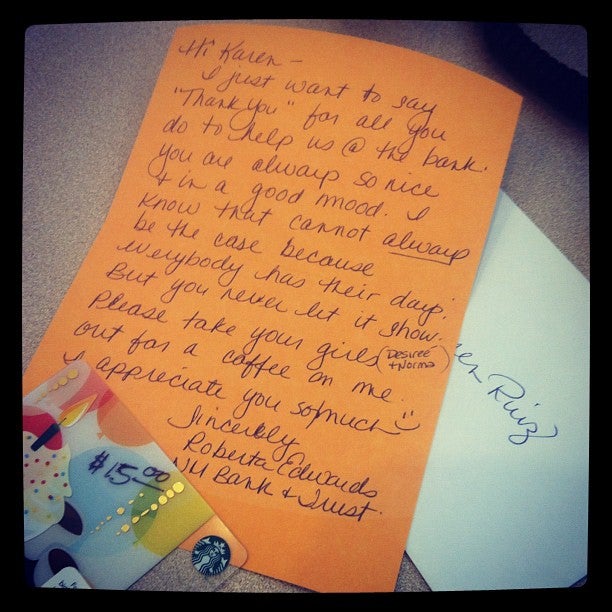 Hi Karen -
I just want to say
"Thank you" for all you
do to help us @ the bank.
You are always so nice
+ in a good mood. I
know that cannot always
be the case because
everybody has their day.
But you never let it show.
Please take your girls (Desiree + Norma)
out for a coffee on me.
I appreciate you so much
Sincerely
Roberta Edwards
NM Bank & Trust.
en Ruiz
$15.00